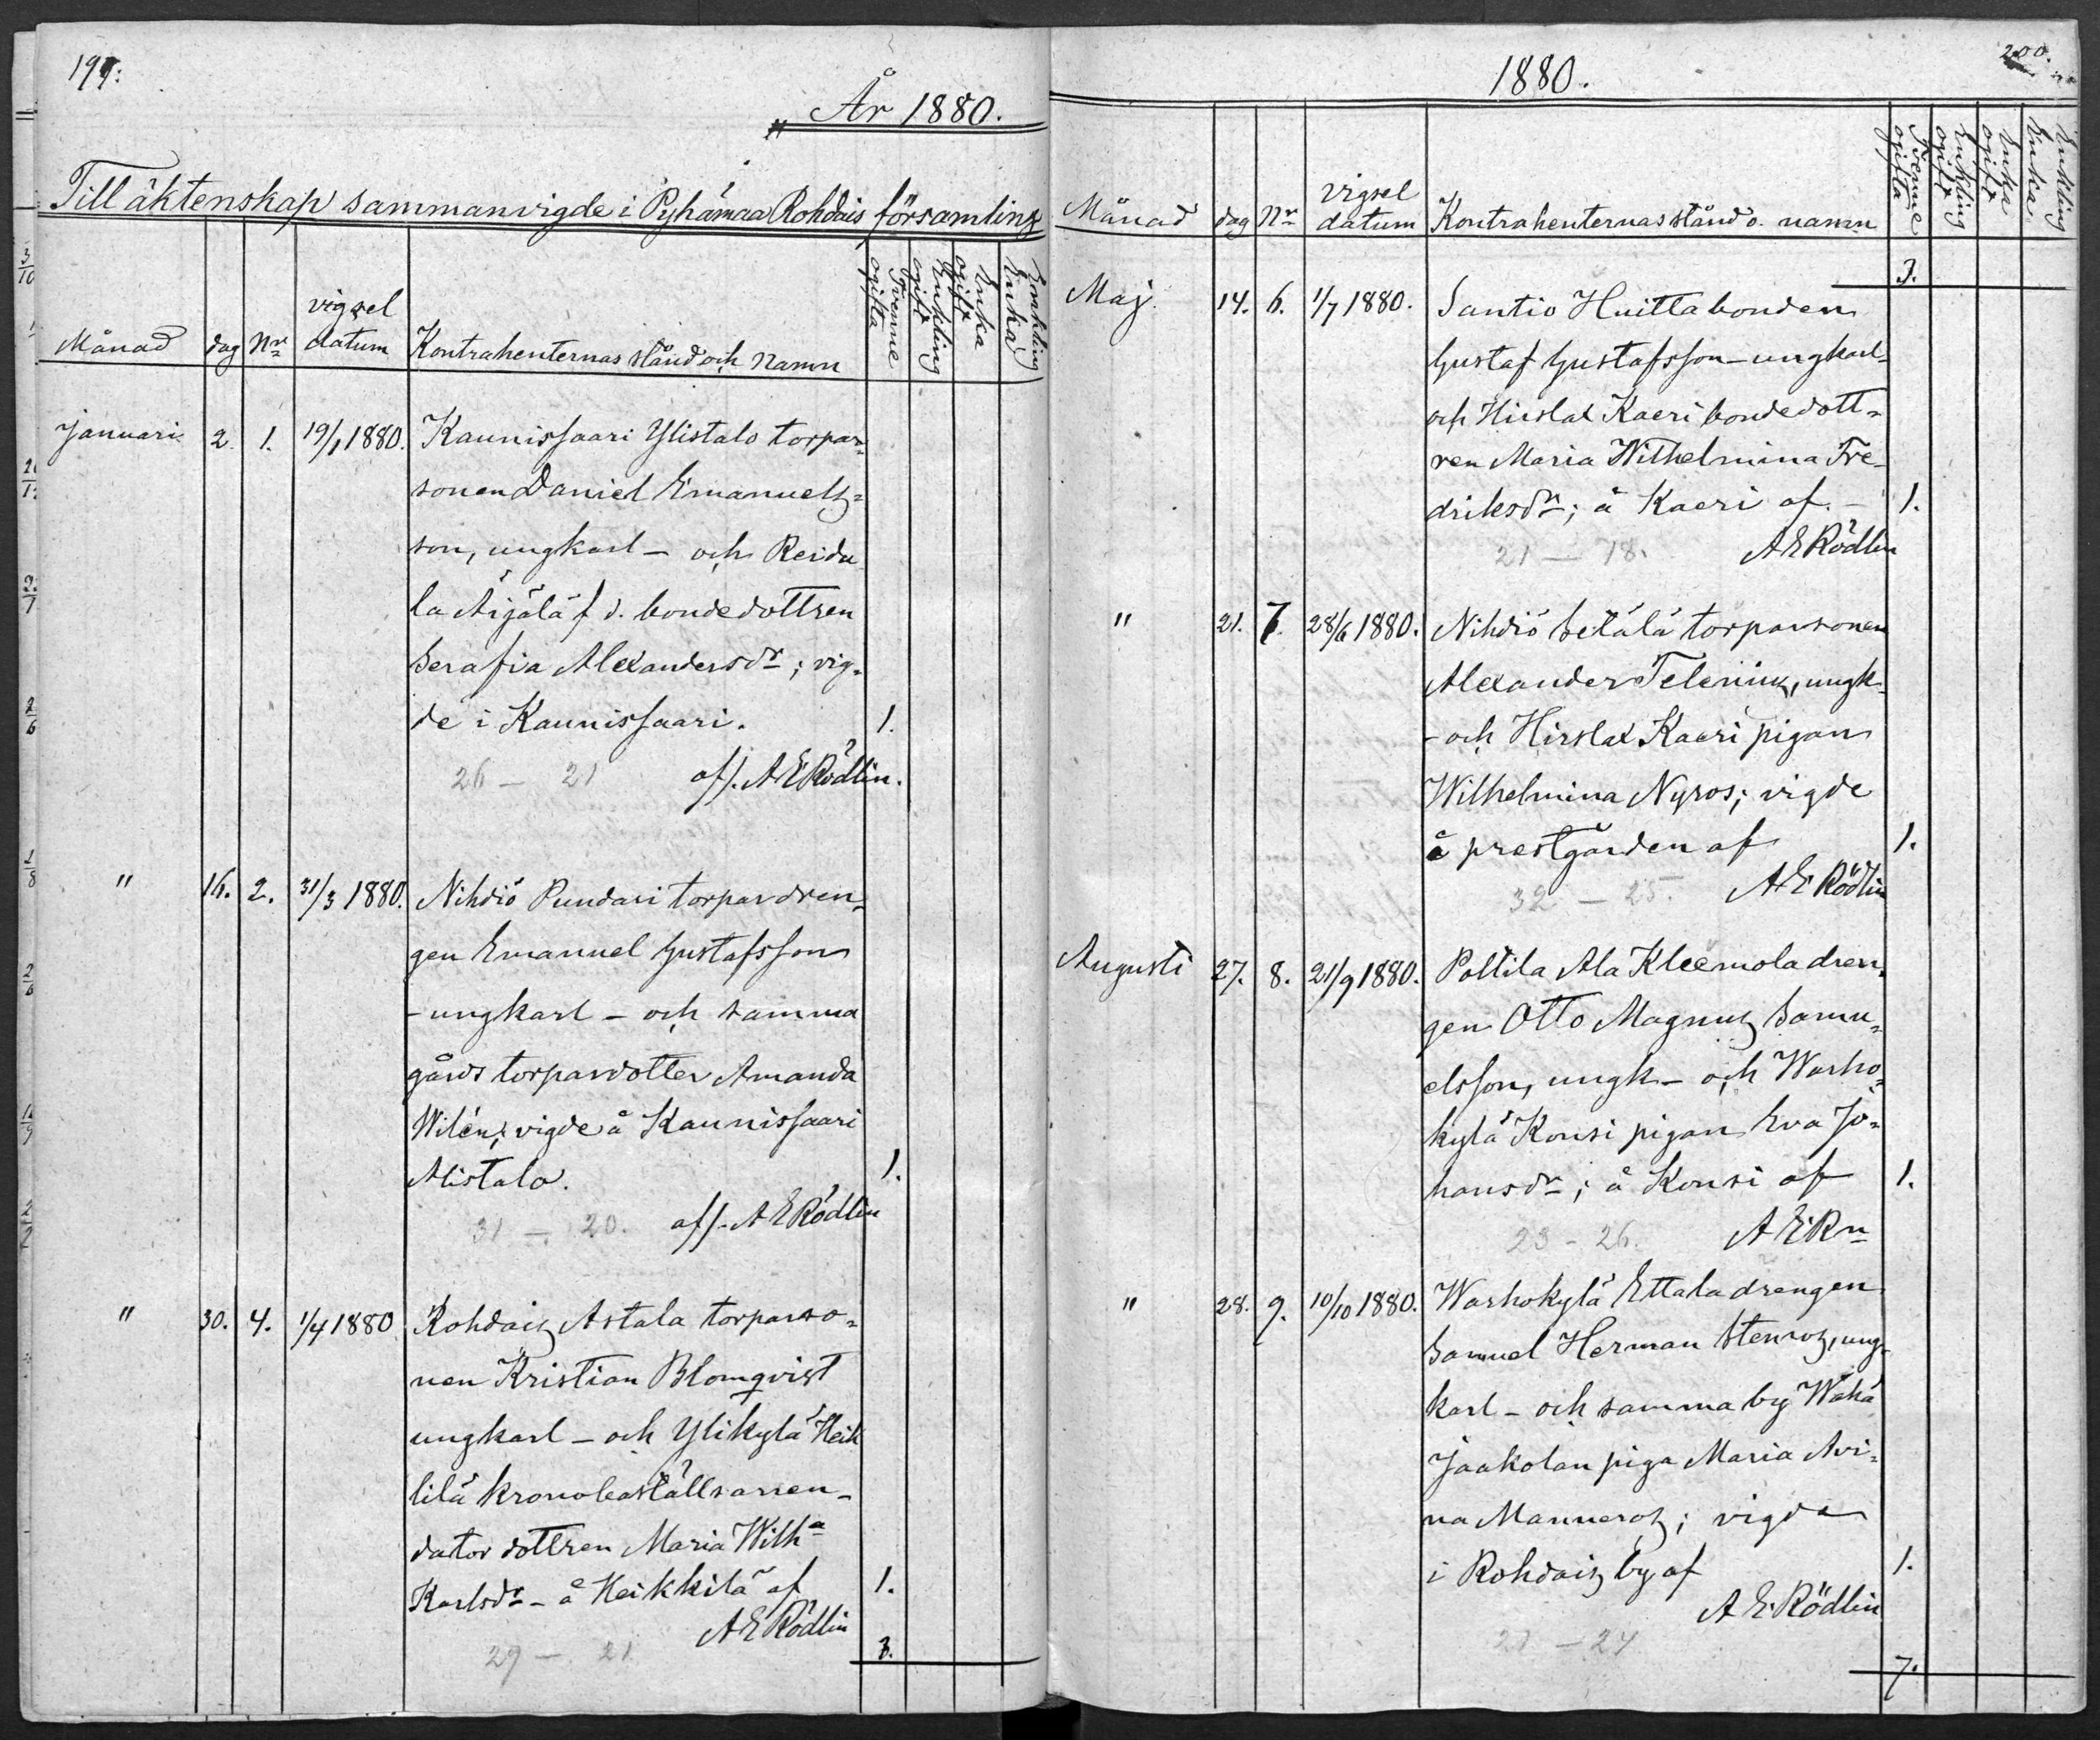 199:
År 1880.
Till äktenskap sammanvigde i Pyhämaa Rohdais församling
Månad dag Nr vigsel datum Kontrahenternas stånd och Namn Tvenne ogifta Enkling ogift Enka ogift Enkling Enka
Januari 2. 1. 19/1 1880. Kaunissaari Ylistalo torpar-
sonen Daniel Emanuels-
son, ungkarl – och Reidu
la Äijälä f d. bondedottren
Serafia Alexandersdr; vig-
de i Kaunissaari. 1.
26 – 21 af/. A E Rödlin.
" 16. 2. 31/3 1880. Nihdiö Pundari torpardren-
gen Emanuel Gustafsson
- ungkarl – och samma
gårds torpardotter Amanda
Wilén; vigde å Kaunissaari
Alistalo. 1.
31 – 20. af/. A E Rödlin
" 30. 4. 1/4 1880 Rohdais Astala torparso-
nen Kristian Blomqvist
ungkarl – och Ylikylä Heik
kilä kronoboställsarren-
dator dottren Maria Wilha
Karlsdr – å Heikkilä af 1.
A E Rödlin
29 – 21 3.
200.
1880.
Månad dag Nr vigsel datum Kontrahenternas stånd o. namn Tvenne ogifta Enkling ogift Enka ogift Enkling Enka
3.
Maj. 14. 6. 1/7 1880. Santio Huitta bonden
Gustaf Gustafsson – ungkarl-
och Hirslax Kaeri bondedott-
ren Maria Wilhelmina Fre-
driksdr; å Kaeri af. – 1.
21 – 78. A E Rödlin
" 21. 7. 28/6 1880. Nihdiö Setälä torparsonen
Alexander Telenius, ungk-
- och Hirslax Kaeri pigan
Wilhelmina Nyros; vigde
å prestgården af 1.
32 – 25. A E Rödlin
Augusti 27. 8. 21/9 1880. Polttila Ala Kleemola dren-
gen Otto Magnus Samu-
elsson, ungk – och Warho-
kylä Konsi pigan Eva Jo-
hansdr; å Konsi af 1.
23 – 26. A E Rn
" 28. 9. 10/10 1880. Warhokylä Ettala drengen
Samuel Herman Stenros, ung-
karl – och samma by Wähä
Jaakolan piga Maria Avi-
na Manneros; vigda
i Rohdais by af 1.
A E Rödlin
21 – 24
7.